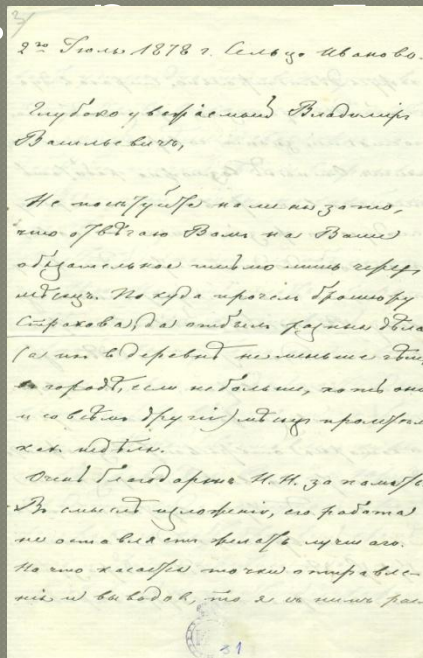 3/
2го Іюль 1878 г. Сельцо Иваново.
Глубокоуважаемый Владиміръ
Васильевичъ,
Не посѣтуйте на меня за то,
что отвѣчаю Вамъ на Ваше
обязательное письмо лишь черезъ
мѣсяцъ. Покуда прочелъ брошюру
Страхова, да отбылъ разныя дѣла
(а ихъ въ деревнѣ не меньше чѣмъ
въ городѣ, если не больше, хоть они
и совсѣмъ другія) мѣсяцъ промчался
какъ недѣля.
Очень благодаренъ Н. Н. за память.
Въ смыслѣ изложенія, его работа
не оставляетъ желать лучшаго.
Но что касается точки отправле-
нія и выводовъ, то я съ нимъ рас-
31